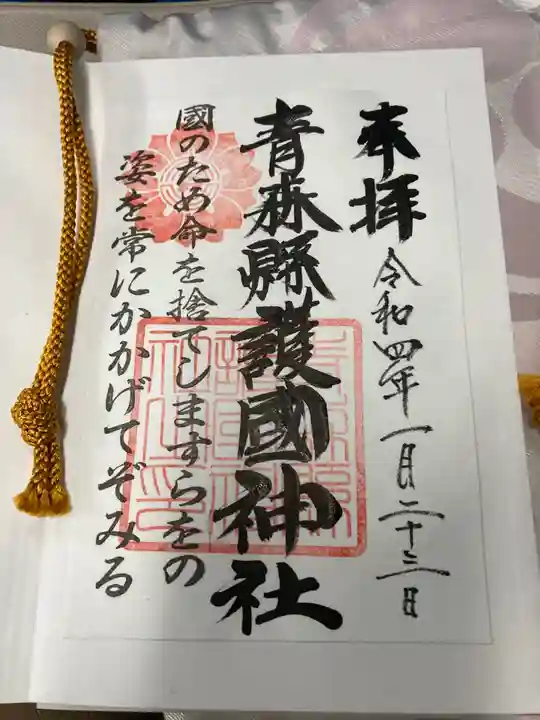 奉拝
令和四年一月二十三日
青森縣護國神社
國のため命を捨てしますらをの
姿を常にかかげてぞみる